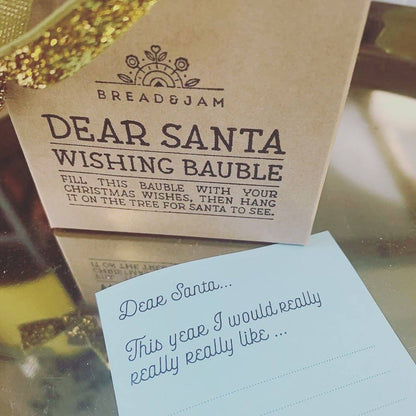 BREAD&JAM
DEAR SANTA
WISHING BAUBLE
FILL THIS BAUBLE WITH YOUR
CHRISTMAS WISHES, THEN HANG
IT ON THE TREE FOR SANTA TO SEE.
Dear Santa...
This year I would really
really really like ...